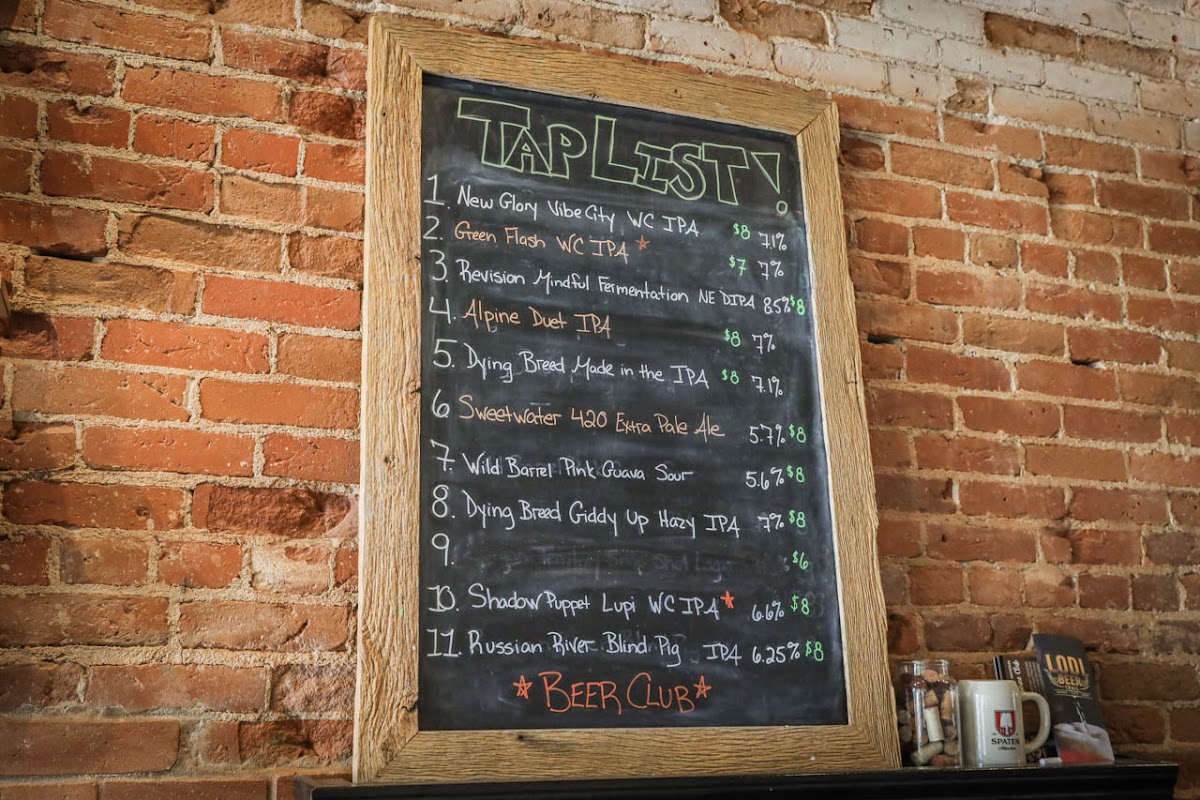 TAP LIST!
1. New Glory Vibe City WC IPA $8 7.1%
2. Green Flash WC IPA* $7 7%
3. Revision Mindful Fermentation NE DIPA 8.5% $8
4. Alpine Duet IPA $8 7%
5. Dying Breed Made in the IPA $8 7.1%
6 Sweetwater 420 Extra Pale Ale 5.7% $8
7. Wild Barrel Pink Guava Sour 5.6% $8
8. Dying Breed Giddy Up Hazy IPA 7% $8
9. Lager $6
10. Shadow Puppet Lupi WC IPA* 6.6% $8
11. Russian River Blind Pig IPA 6.25% $8
*BEER CLUB*
LODI
BEER
SPATEN